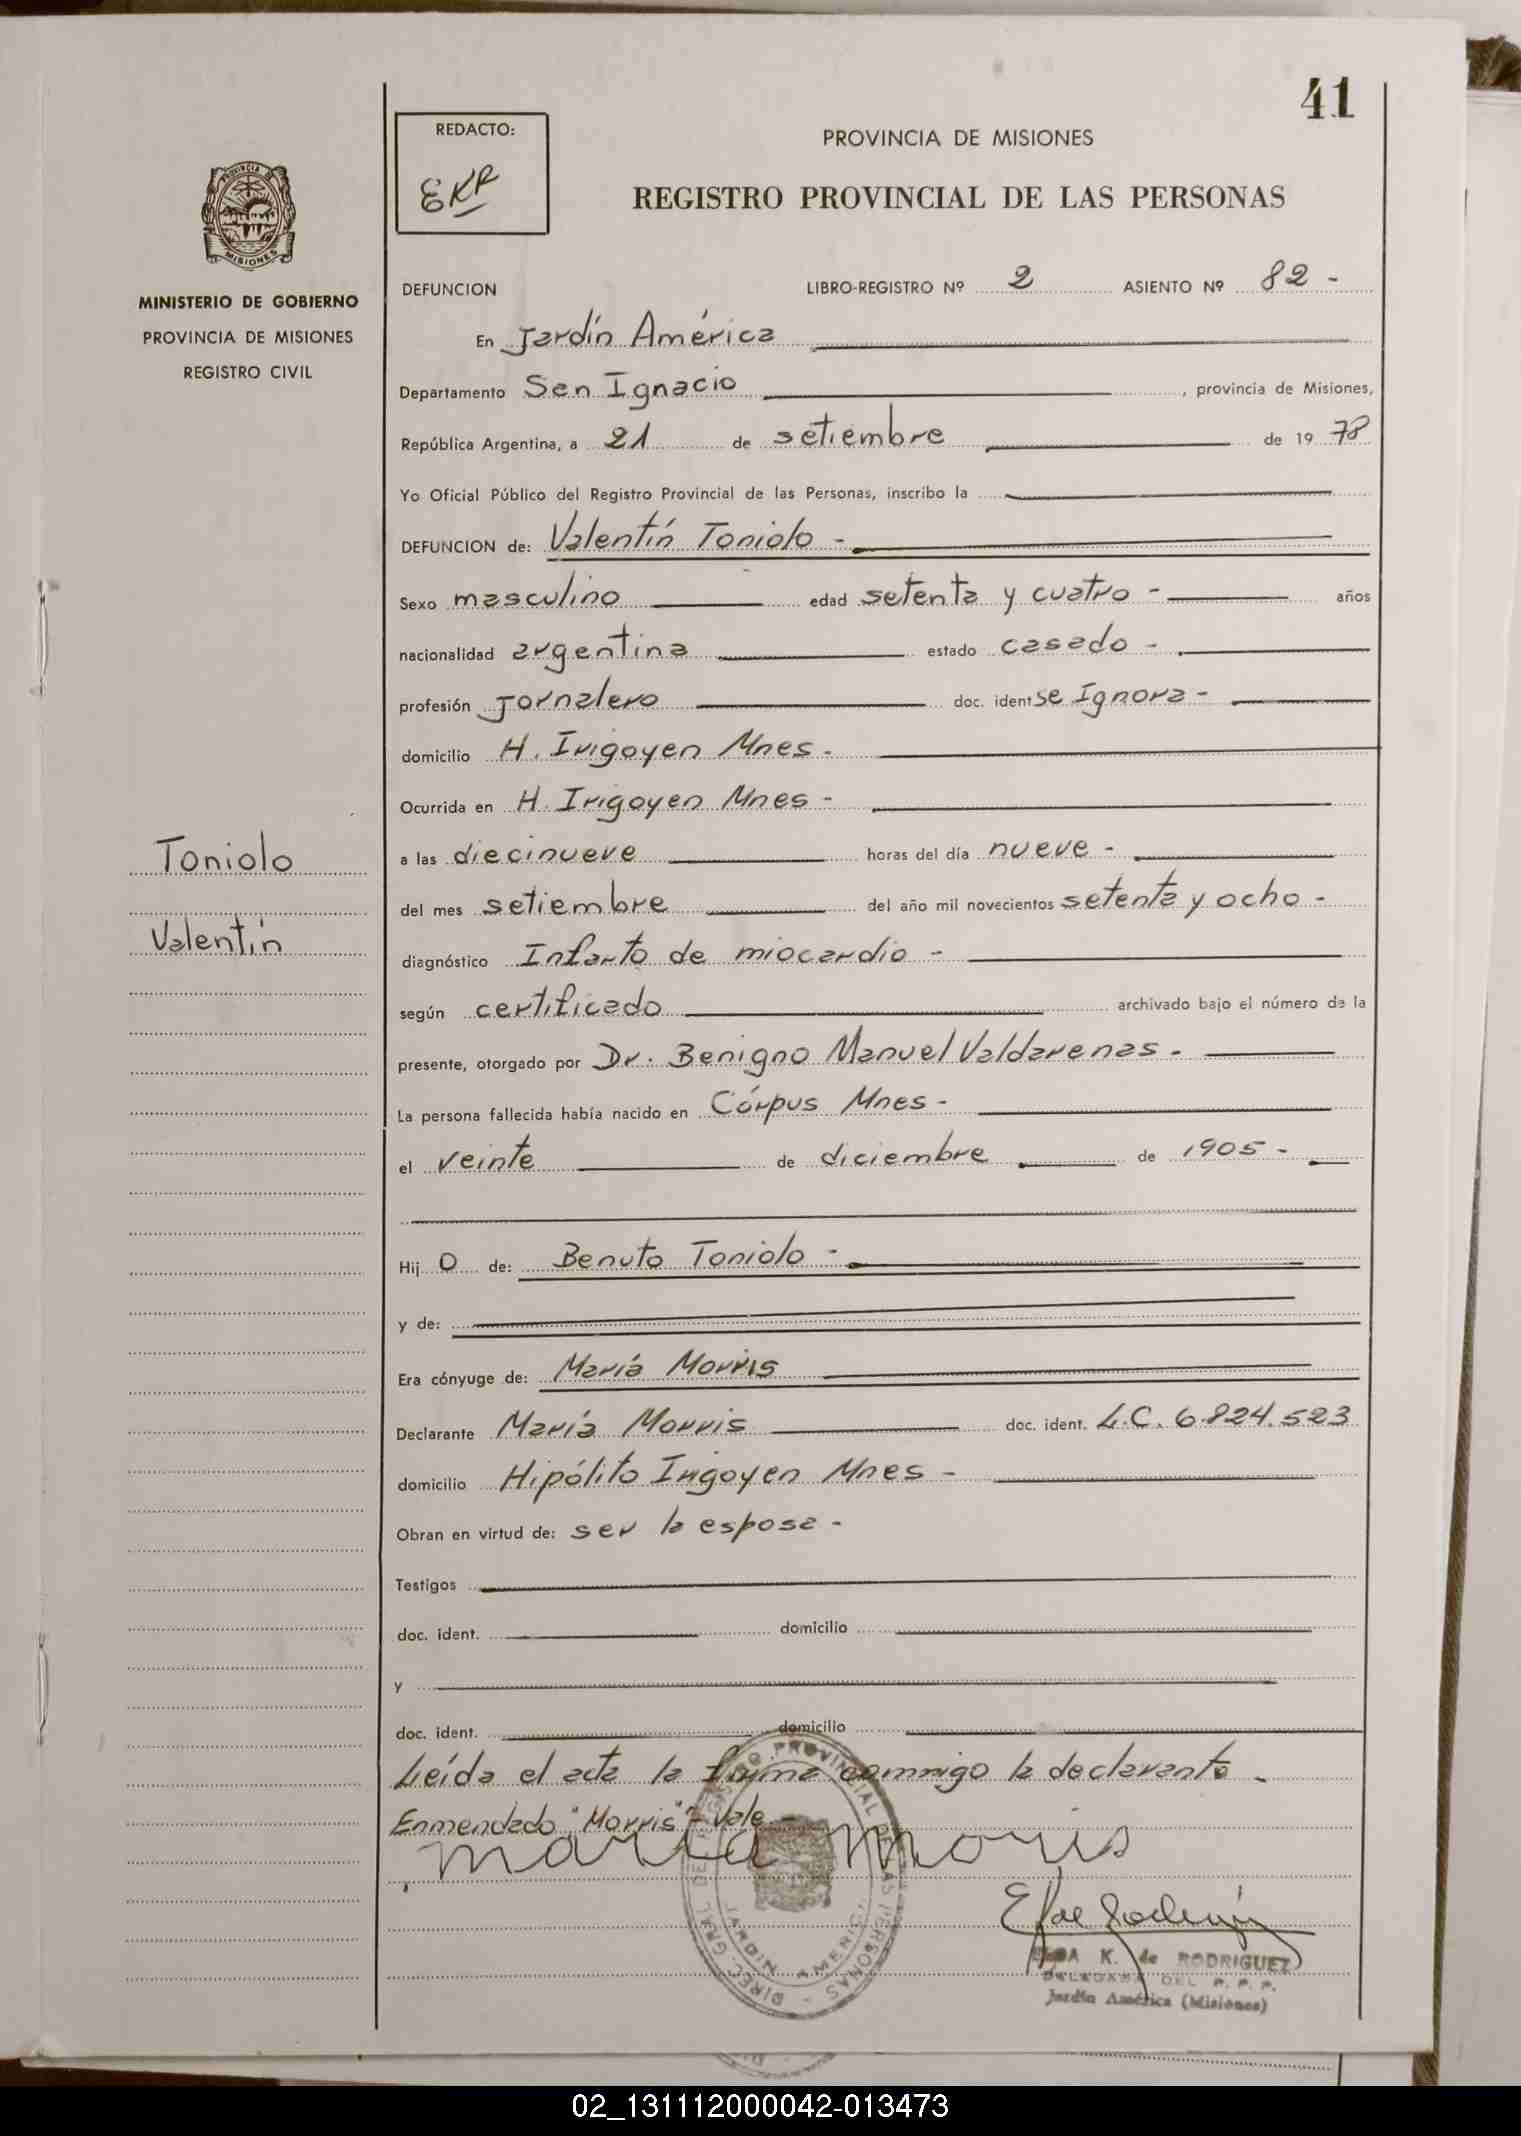 41
REDACTO:
EKR
PROVINCIA DE MISIONES
REGISTRO PROVINCIAL DE LAS PERSONAS
PROVINCIA DE
MISIONES
MINISTERIO DE GOBIERNO
PROVINCIA DE MISIONES
REGISTRO CIVIL
Toniolo
Valentín
DEFUNCION LIBRO-REGISTRO Nº 2 ASIENTO Nº 82 -
En Jardín América
Departamento San Ignacio, provincia de Misiones,
República Argentina, a 21 de setiembre de 1978
Yo Oficial Público del Registro Provincial de las Personas, inscribo la
DEFUNCION de: Valentín Toniolo -
Sexo masculino edad setenta y cuatro - años
nacionalidad argentina estado casado -
profesión Jornalero doc. ident se Ignora -
domicilio H. Irigoyen Mnes -
Ocurrida en H. Irigoyen Mnes -
a las diecinueve horas del día nueve -
del mes setiembre del año mil novecientos setenta y ocho -
diagnóstico Infarto de miocardio -
según certificado archivado bajo el número de la
presente, otorgado por Dr. Benigno Manuel Valdarenas -
La persona fallecida había nacido en Córpus Mnes -
el veinte de diciembre de 1905 -
Hij o de: Benuto Toniolo -
y de:
Era cónyuge de: María Morris
Declarante María Morris doc. ident. L.C. 6.824.523
domicilio Hipólito Irigoyen Mnes -
Obran en virtud de: ser la esposa -
Testigos
doc. ident. domicilio
y
doc. ident. domicilio
Leída el acta la firma conmigo la declarante -
Enmendado "Morris" - Vale -
maria moris
DIREC. GRAL. DE REGISTRO PROVINCIAL DE LAS PERSONAS -
JARDIN AMERICA
K. de RODRIGUEZ
DELEGADA DEL R. P. P.
Jardín América (Misiones)
02_131112000042-013473